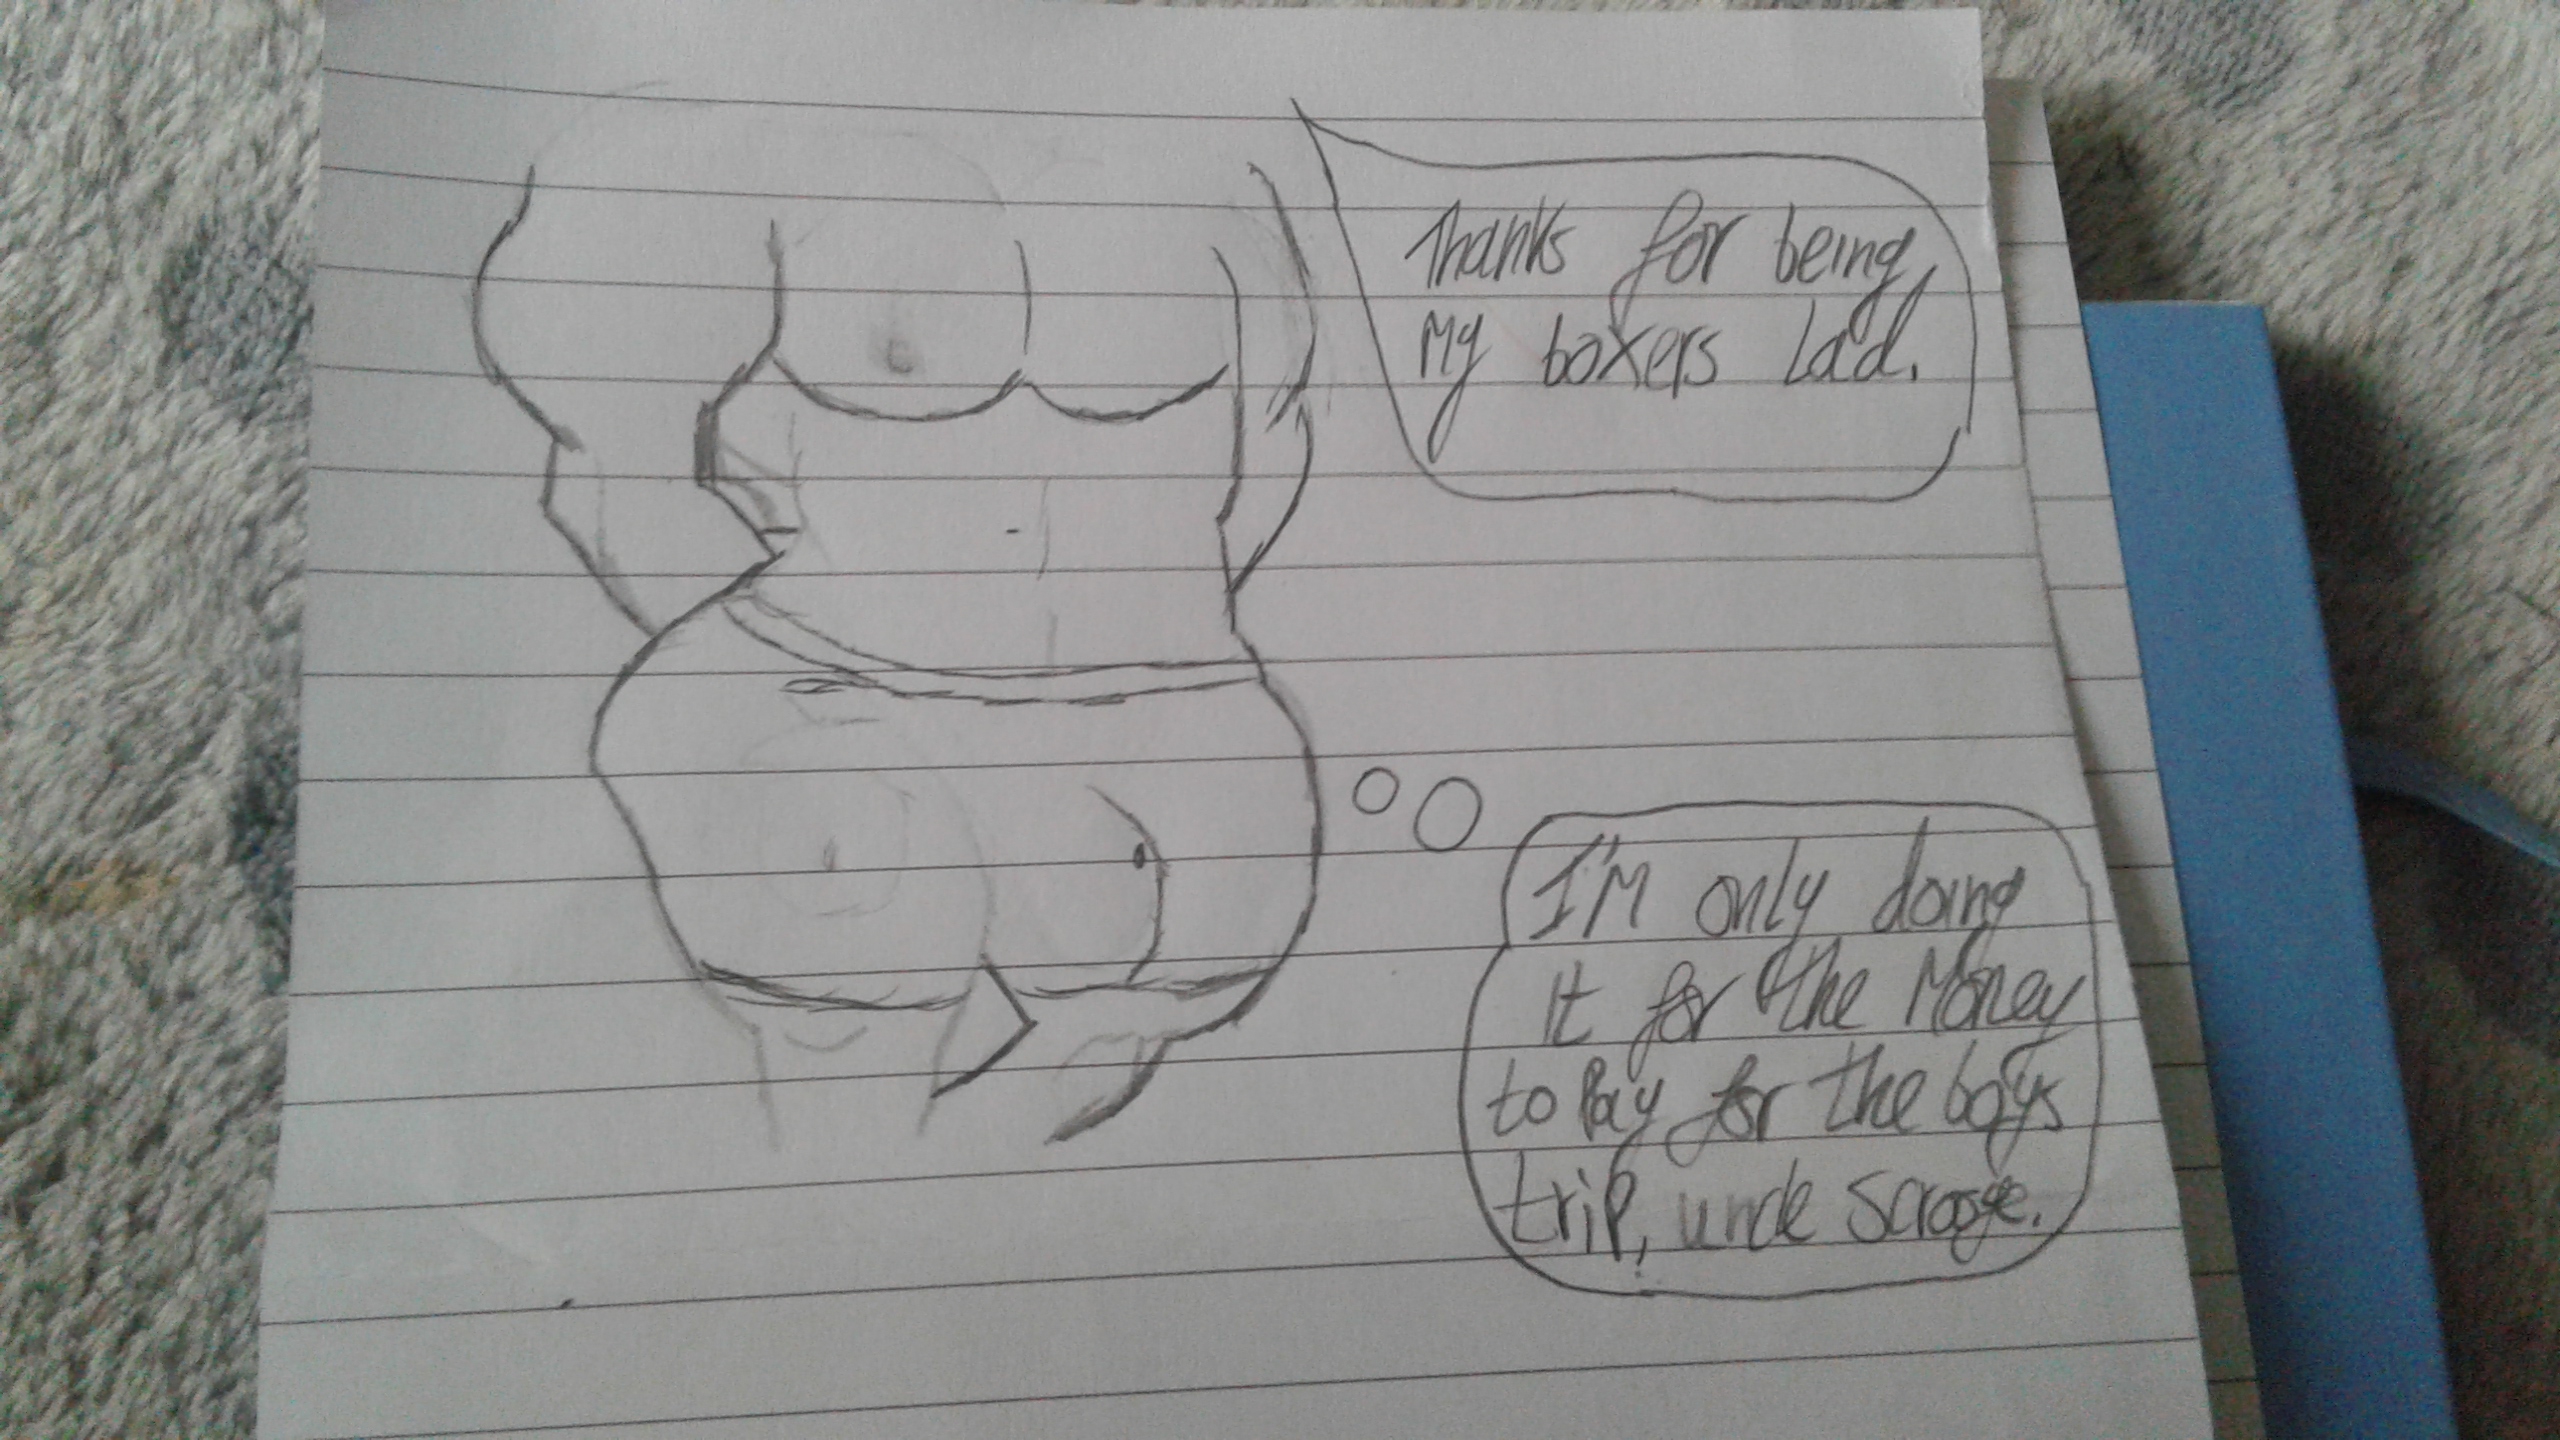 Thanks for being
My boxers Lad.
I'M only doing
it for the Money
to Pay for the boys
trip, uncle Scrooge.